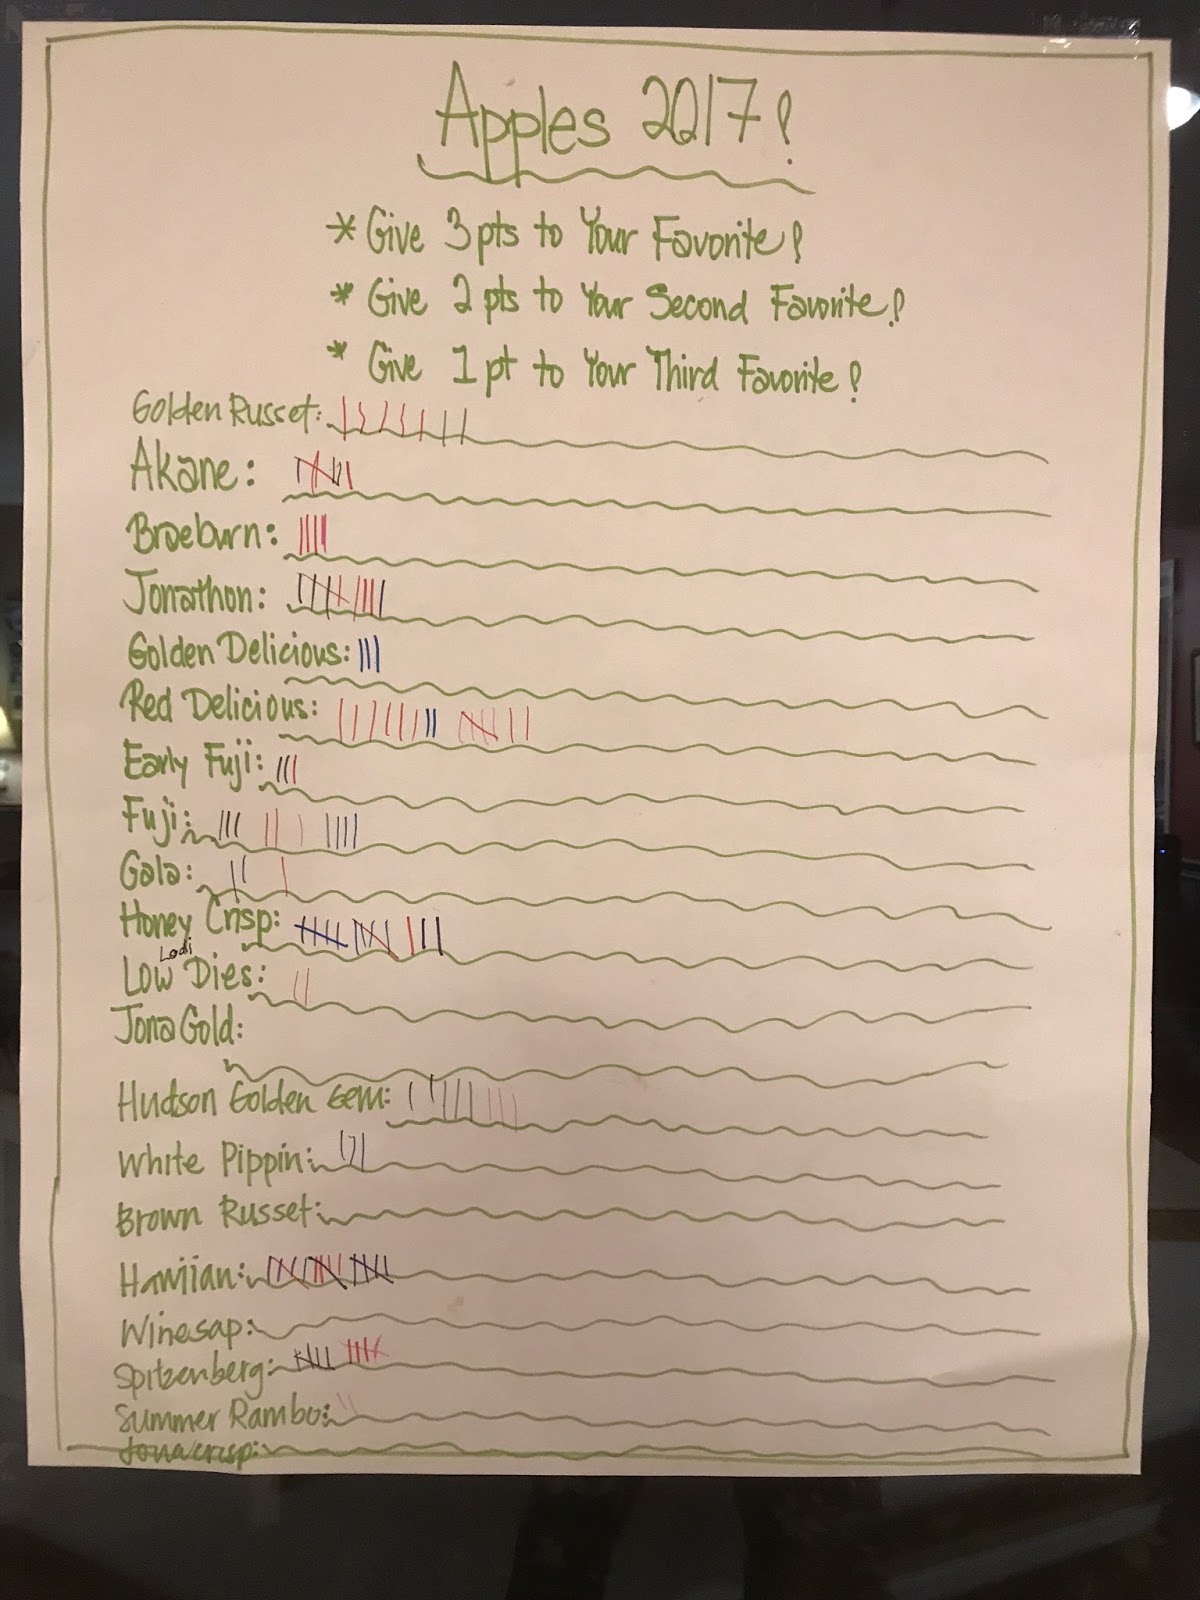 Apples 2017!
* Give 3 pts to Your Favorite!
* Give 2 pts to Your Second Favorite!
* Give 1 pt to Your Third Favorite!
Golden Russet:
Akane:
Braeburn:
Jonathon:
Golden Delicious:
Red Delicious:
Early Fuji:
Fuji:
Gala:
Honey Crisp:
Lodi
Low Dies:
Jona Gold:
Hudson Golden Gem:
White Pippin:
Brown Russet:
Hawiian:
Winesap:
Spitzenberg:
Summer Rambo:
Jonacrisp: